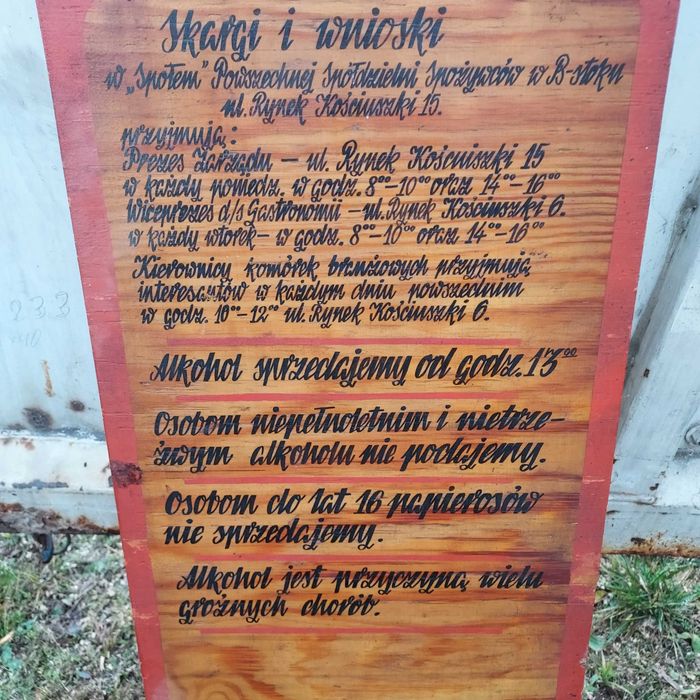 Skargi i wnioski
w „Społem" Powszechnej Spółdzielni Spożywców w B-stoku
ul. Rynek Kościuszki 15.
przyjmują:
Prezes Zarządu – ul. Rynek Kościuszki 15
w każdy poniedz. w godz. 8⁰⁰–10⁰⁰ oraz 14⁰⁰–16⁰⁰
Wiceprezes d/s Gastronomii – ul. Rynek Kościuszki 6.
w każdy wtorek – w godz. 8⁰⁰–10⁰⁰ oraz 14⁰⁰–16⁰⁰
Kierownicy komórek branżowych przyjmują
interesantów w każdym dniu powszednim
w godz. 10⁰⁰–12⁰⁰ ul. Rynek Kościuszki 6.
Alkohol sprzedajemy od godz. 13⁰⁰
Osobom niepełnoletnim i nietrze-
źwym alkoholu nie podajemy.
Osobom do lat 16 papierosów
nie sprzedajemy.
Alkohol jest przyczyną wielu
groźnych chorób.
233